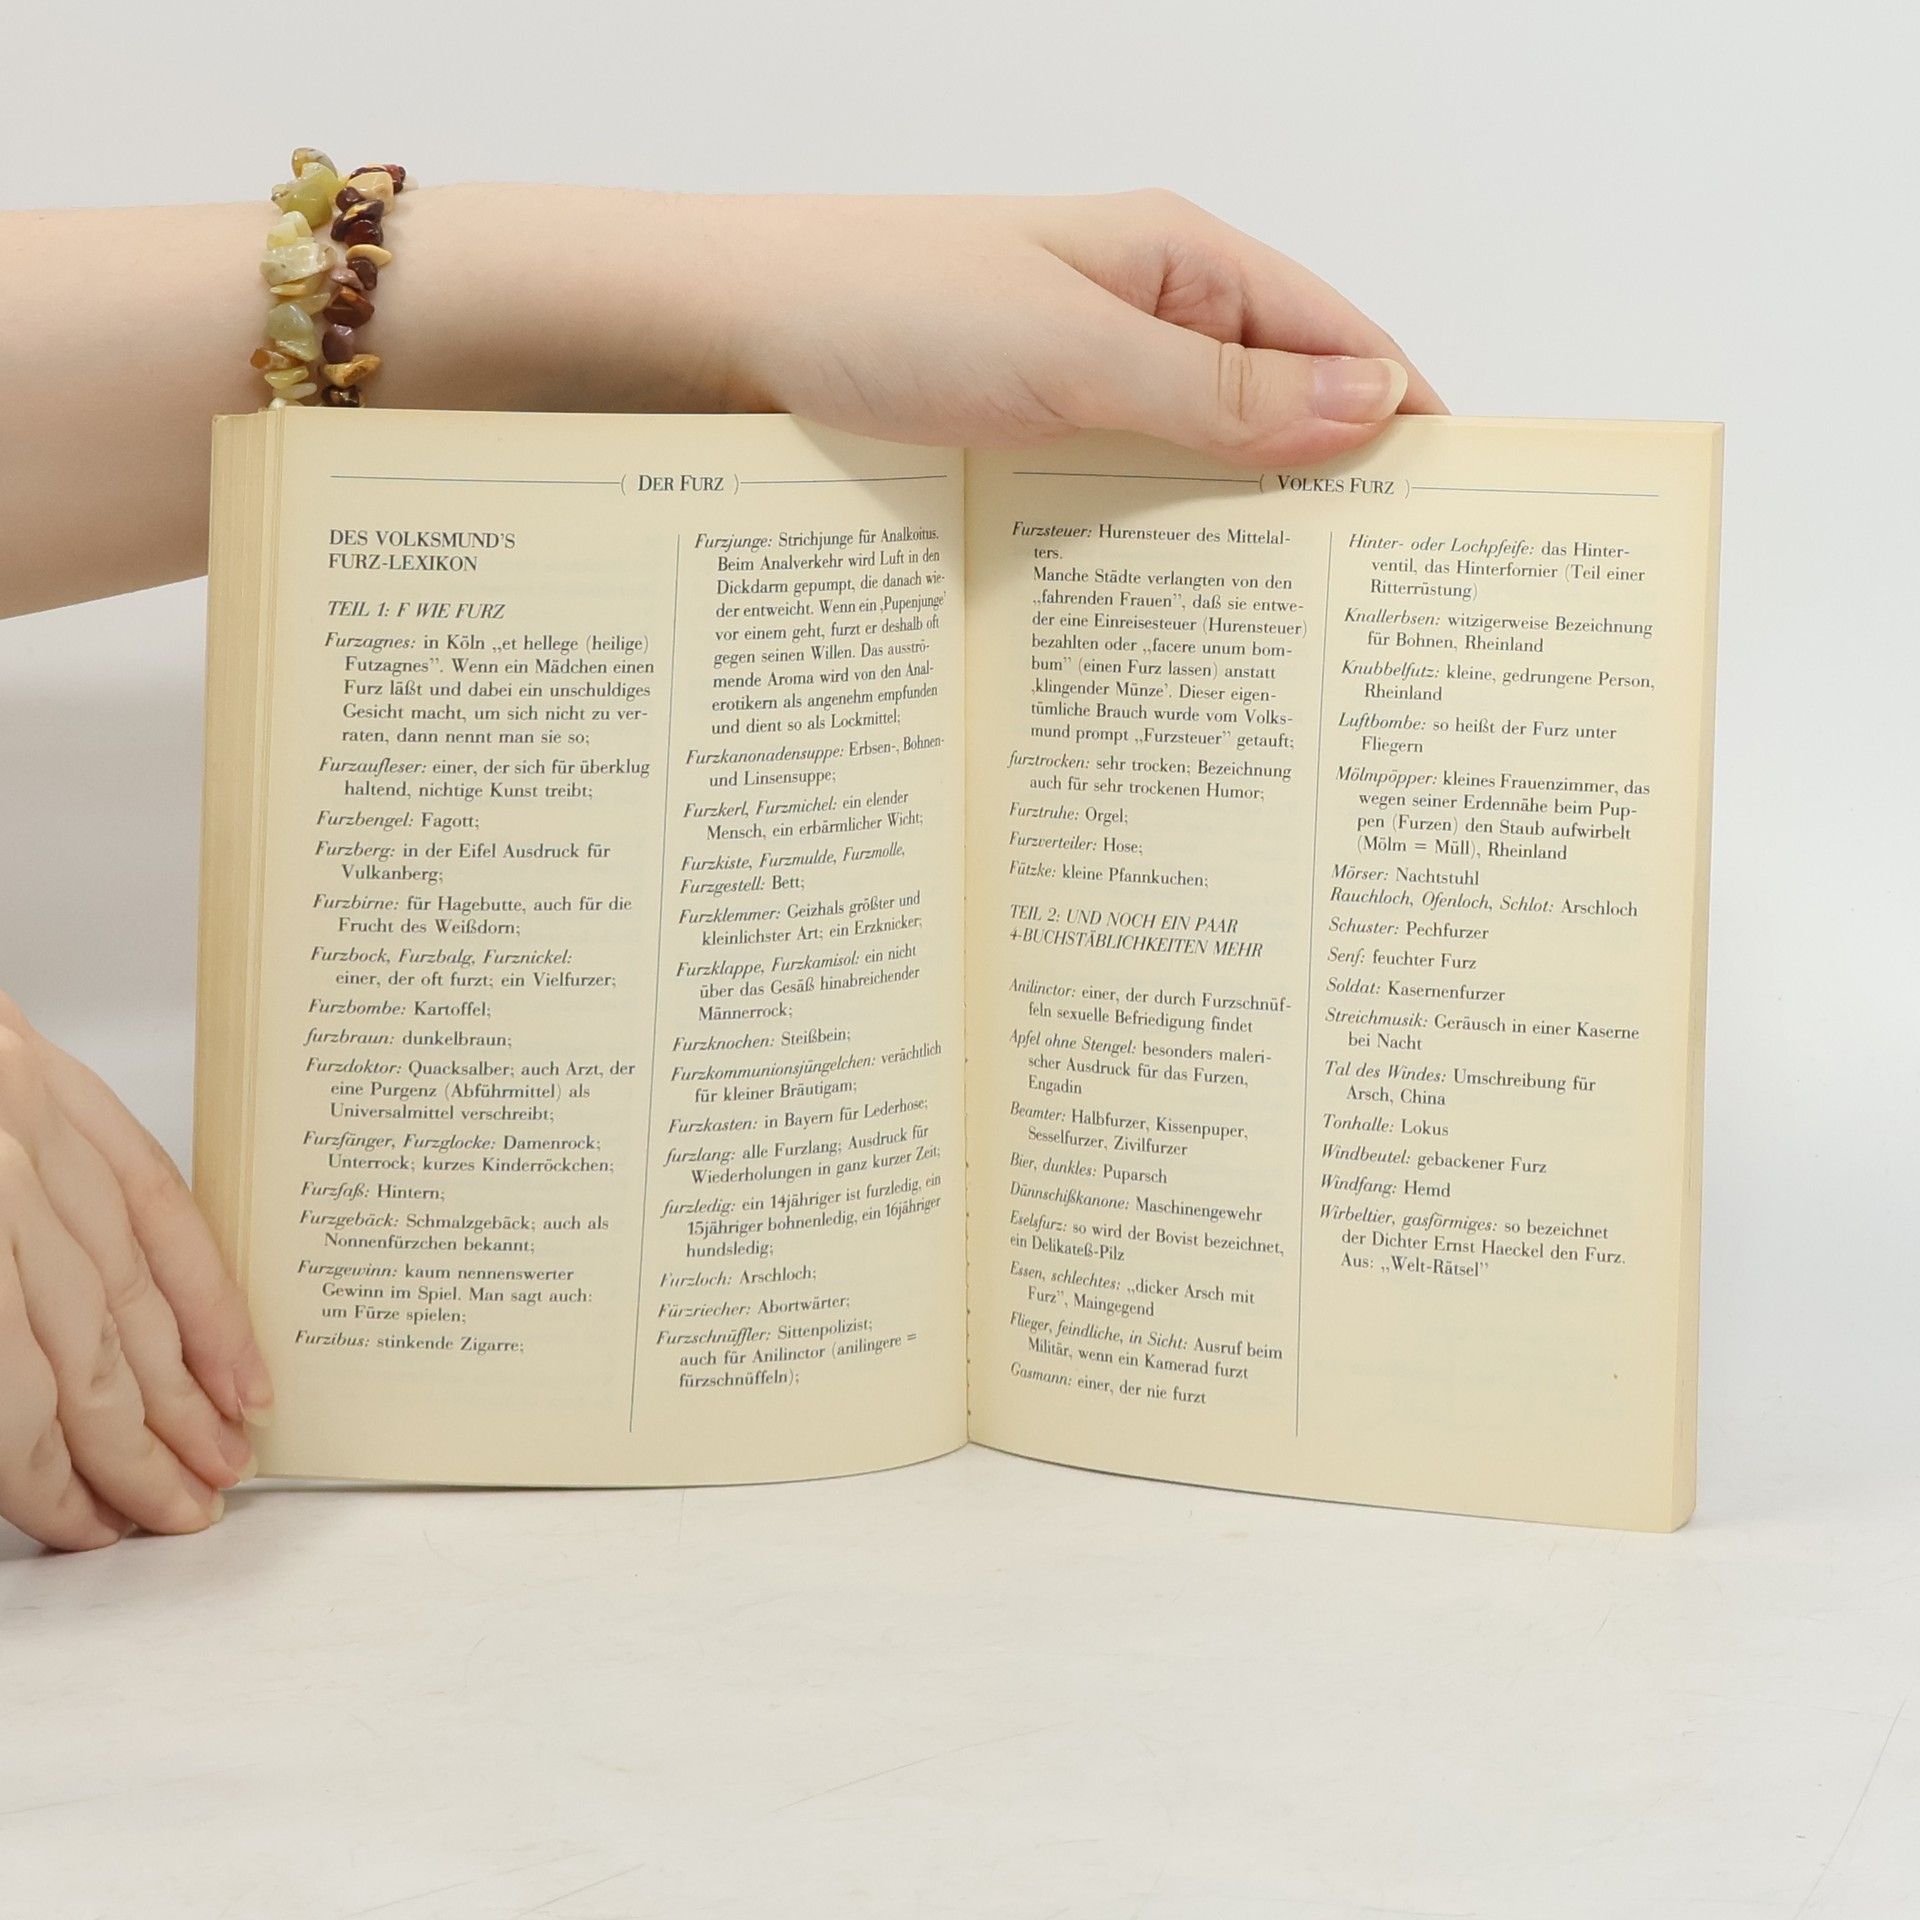 ( DER FURZ )
DES VOLKSMUND'S
FURZ-LEXIKON
TEIL 1: F WIE FURZ
Furzagnes: in Köln „et hellege (heilige)
Futzagnes”. Wenn ein Mädchen einen
Furz läßt und dabei ein unschuldiges
Gesicht macht, um sich nicht zu ver-
raten, dann nennt man sie so;
Furzaufleser: einer, der sich für überklug
haltend, nichtige Kunst treibt;
Furzbengel: Fagott;
Furzberg: in der Eifel Ausdruck für
Vulkanberg;
Furzbirne: für Hagebutte, auch für die
Frucht des Weißdorn;
Furzbock, Furzbalg, Furznickel:
einer, der oft furzt; ein Vielfurzer;
Furzbombe: Kartoffel;
furzbraun: dunkelbraun;
Furzdoktor: Quacksalber; auch Arzt, der
eine Purgenz (Abführmittel) als
Universalmittel verschreibt;
Furzfänger, Furzglocke: Damenrock;
Unterrock; kurzes Kinderröckchen;
Furzfaß: Hintern;
Furzgebäck: Schmalzgebäck; auch als
Nonnenfürzchen bekannt;
Furzgewinn: kaum nennenswerter
Gewinn im Spiel. Man sagt auch:
um Fürze spielen;
Furzibus: stinkende Zigarre;
Furzjunge: Strichjunge für Analkoitus.
Beim Analverkehr wird Luft in den
Dickdarm gepumpt, die danach wie-
der entweicht. Wenn ein ‚Pupenjunge’
vor einem geht, furzt er deshalb oft
gegen seinen Willen. Das ausströ-
mende Aroma wird von den Anal-
erotikern als angenehm empfunden
und dient so als Lockmittel;
Furzkanonadensuppe: Erbsen-, Bohnen-
und Linsensuppe;
Furzkerl, Furzmichel: ein elender
Mensch, ein erbärmlicher Wicht;
Furzkiste, Furzmulde, Furzmolle,
Furzgestell: Bett;
Furzklemmer: Geizhals größter und
kleinlichster Art; ein Erzknicker;
Furzklappe, Furzkamisol: ein nicht
über das Gesäß hinabreichender
Männerrock;
Furzknochen: Steißbein;
Furzkommunionsjüngelchen: verächtlich
für kleiner Bräutigam;
Furzkasten: in Bayern für Lederhose;
furzlang: alle Furzlang; Ausdruck für
Wiederholungen in ganz kurzer Zeit;
furzledig: ein 14jähriger ist furzledig, ein
15jähriger bohnenledig, ein 16jähriger
hundsledig;
Furzloch: Arschloch;
Fürzriecher: Abortwärter;
Furzschnüffler: Sittenpolizist;
auch für Anilinctor (anilingere =
fürzschnüffeln);
( VOLKES FURZ )
Furzsteuer: Hurensteuer des Mittelal-
ters.
Manche Städte verlangten von den
„fahrenden Frauen”, daß sie entwe-
der eine Einreisesteuer (Hurensteuer)
bezahlten oder „facere unum bom-
bum” (einen Furz lassen) anstatt
‚klingender Münze’. Dieser eigen-
tümliche Brauch wurde vom Volks-
mund prompt „Furzsteuer” getauft;
furztrocken: sehr trocken; Bezeichnung
auch für sehr trockenen Humor;
Furztruhe: Orgel;
Furzverteiler: Hose;
Fützke: kleine Pfannkuchen;
TEIL 2: UND NOCH EIN PAAR
4-BUCHSTÄBLICHKEITEN MEHR
Anilinctor: einer, der durch Furzschnüf-
feln sexuelle Befriedigung findet
Apfel ohne Stengel: besonders maleri-
scher Ausdruck für das Furzen,
Engadin
Beamter: Halbfurzer, Kissenpuper,
Sesselfurzer, Zivilfurzer
Bier, dunkles: Puparsch
Dünnschißkanone: Maschinengewehr
Eselsfurz: so wird der Bovist bezeichnet,
ein Delikateß-Pilz
Essen, schlechtes: „dicker Arsch mit
Furz”, Maingegend
Flieger, feindliche, in Sicht: Ausruf beim
Militär, wenn ein Kamerad furzt
Gasmann: einer, der nie furzt
Hinter- oder Lochpfeife: das Hinter-
ventil, das Hinterfornier (Teil einer
Ritterrüstung)
Knallerbsen: witzigerweise Bezeichnung
für Bohnen, Rheinland
Knubbelfutz: kleine, gedrungene Person,
Rheinland
Luftbombe: so heißt der Furz unter
Fliegern
Mölmpöpper: kleines Frauenzimmer, das
wegen seiner Erdennähe beim Pup-
pen (Furzen) den Staub aufwirbelt
(Mölm = Müll), Rheinland
Mörser: Nachtstuhl
Rauchloch, Ofenloch, Schlot: Arschloch
Schuster: Pechfurzer
Senf: feuchter Furz
Soldat: Kasernenfurzer
Streichmusik: Geräusch in einer Kaserne
bei Nacht
Tal des Windes: Umschreibung für
Arsch, China
Tonhalle: Lokus
Windbeutel: gebackener Furz
Windfang: Hemd
Wirbeltier, gasförmiges: so bezeichnet
der Dichter Ernst Haeckel den Furz.
Aus: „Welt-Rätsel”